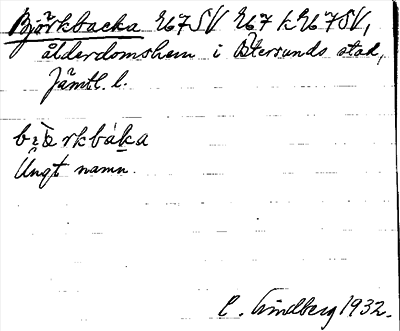 Björkbacka 2667SV 2667 k 2667SV,
ålderdomshem i Östersunds stad,
Jämtl. l.
rkbáka
Ungt namn.
C. Lindberg 1932.